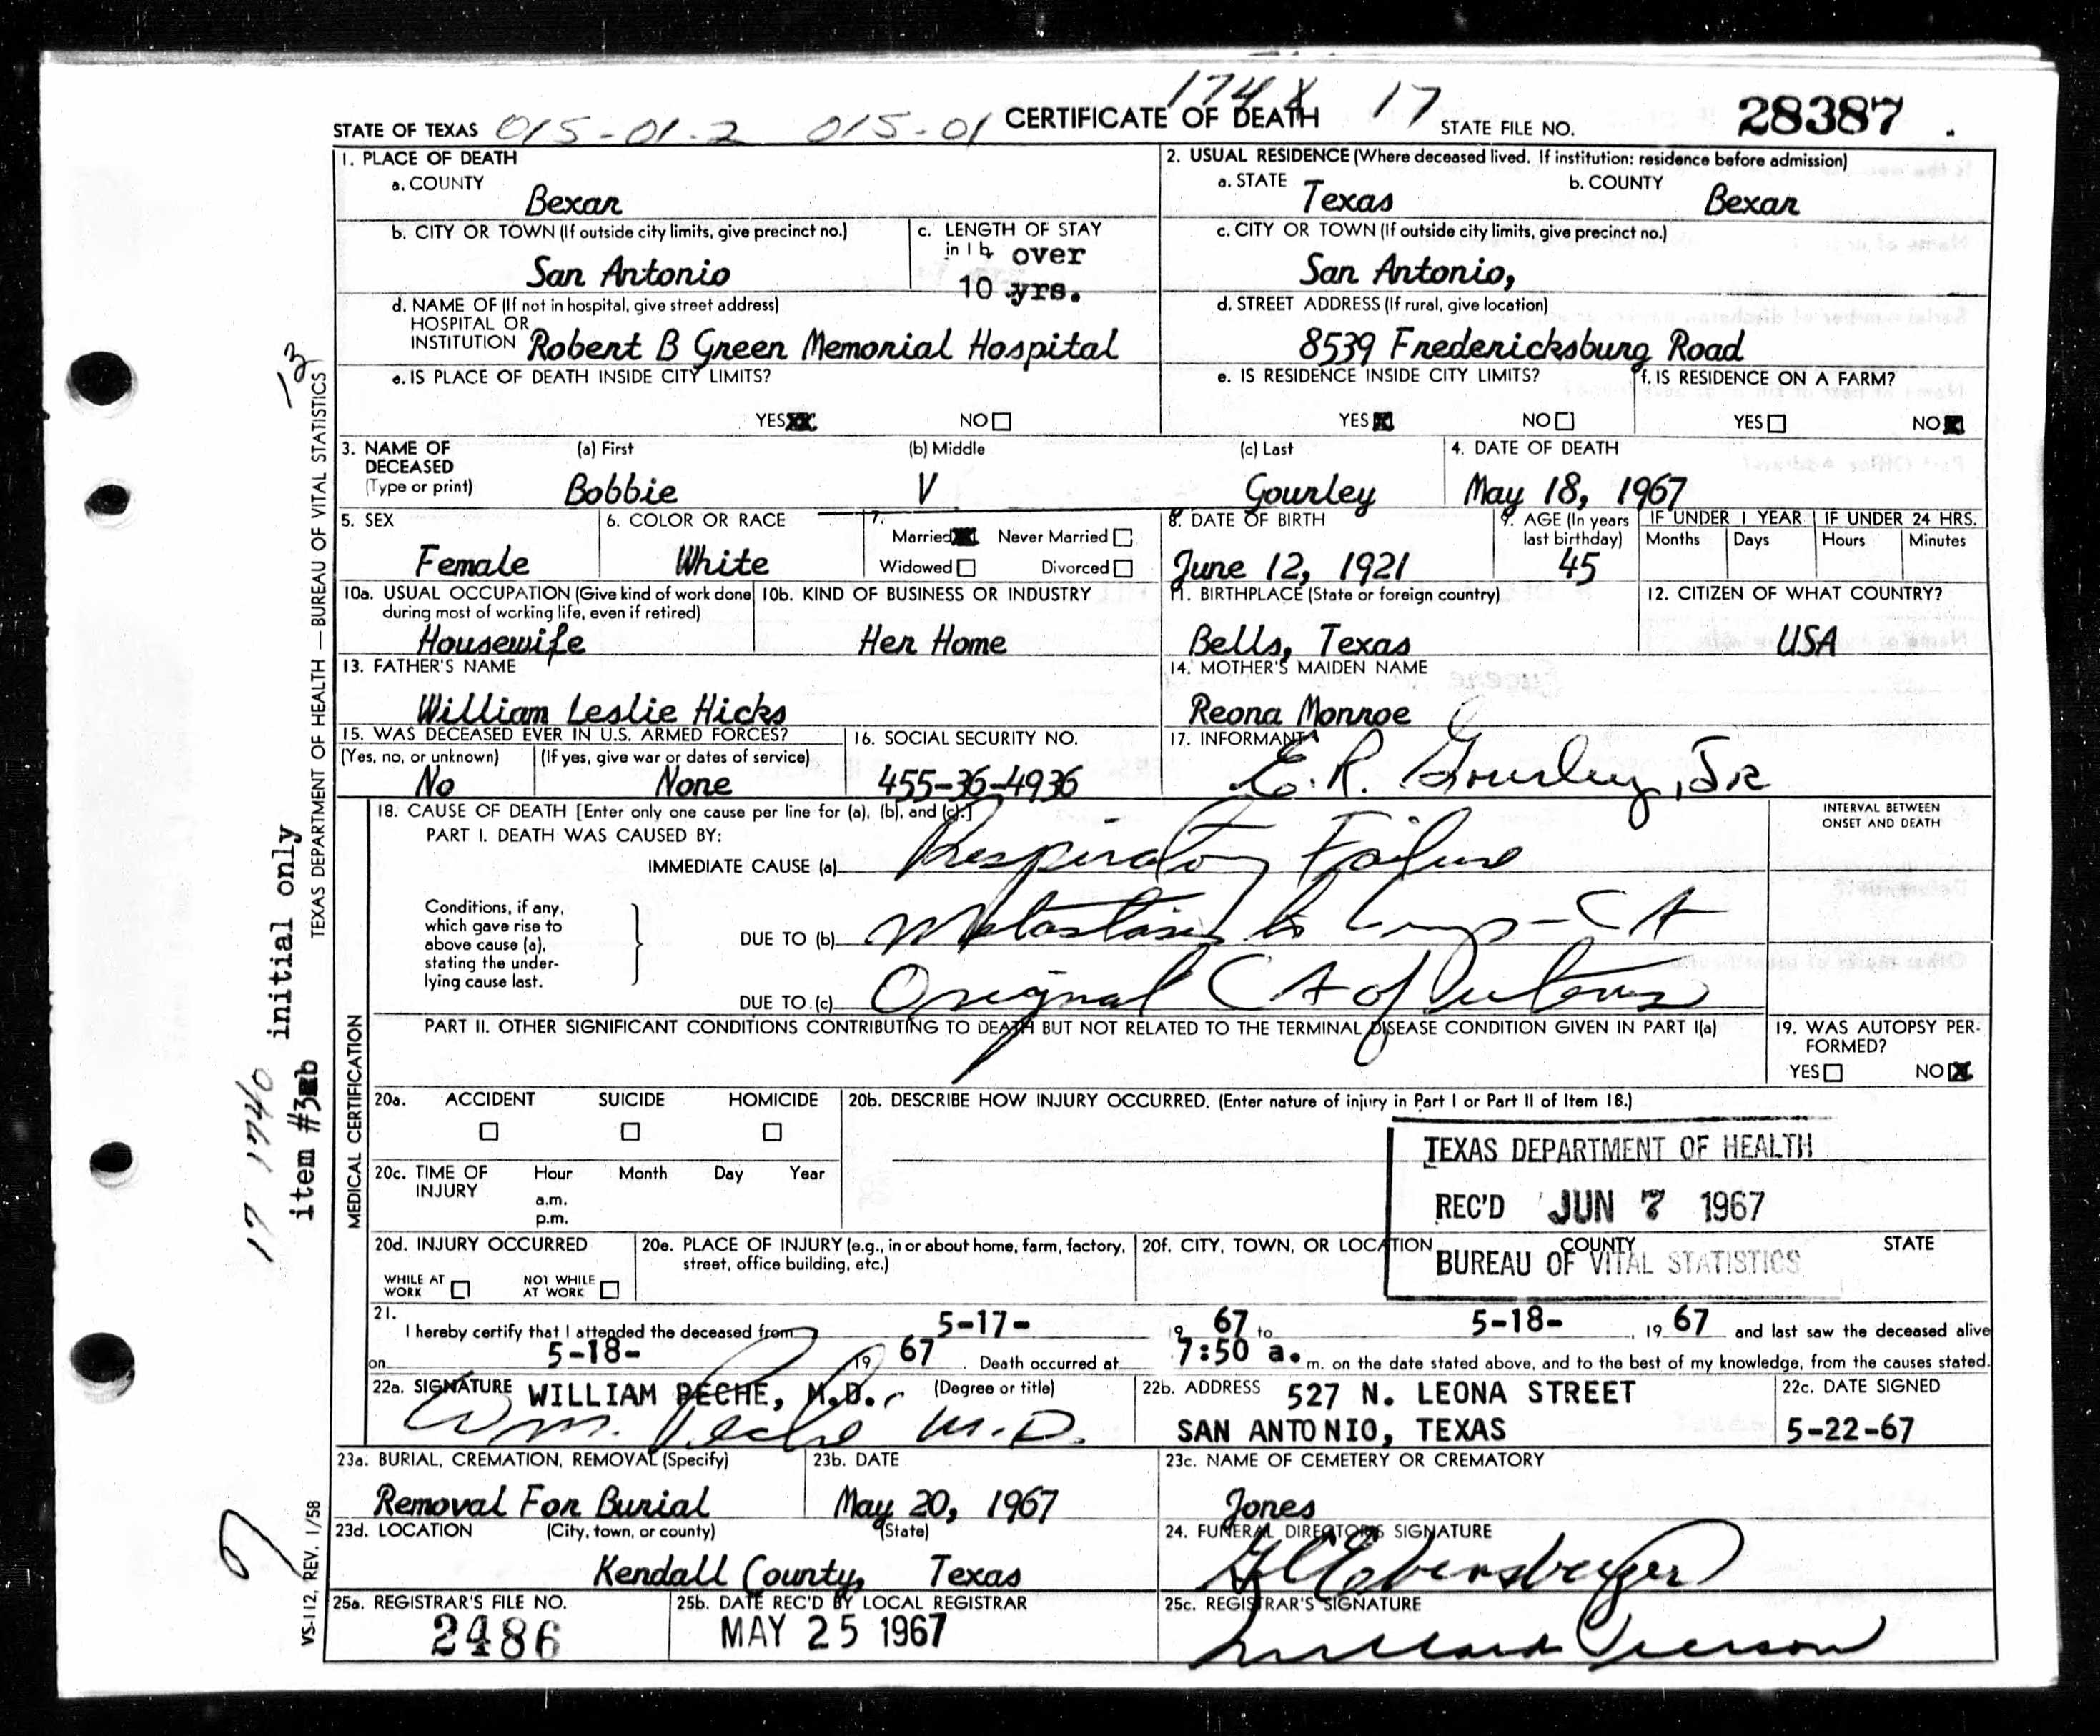 174X 17
STATE OF TEXAS 015-01-2 015-01 CERTIFICATE OF DEATH STATE FILE NO. 28387
1. PLACE OF DEATH
a. COUNTY
Bexar
2. USUAL RESIDENCE (Where deceased lived. If institution: residence before admission)
a. STATE Texas b. COUNTY Bexar
b. CITY OR TOWN (If outside city limits, give precinct no.)
San Antonio
c. LENGTH OF STAY
in 1 b over
10 yrs.
c. CITY OR TOWN (If outside city limits, give precinct no.)
San Antonio,
d. NAME OF (If not in hospital, give street address)
HOSPITAL OR
INSTITUTION Robert B Green Memorial Hospital
d. STREET ADDRESS (If rural, give location)
8539 Fredericksburg Road
e. IS PLACE OF DEATH INSIDE CITY LIMITS?
YES NO
e. IS RESIDENCE INSIDE CITY LIMITS?
YES NO
f. IS RESIDENCE ON A FARM?
YES NO
3. NAME OF DECEASED
(Type or print)
(a) First (b) Middle (c) Last
Bobbie V Gourley
4. DATE OF DEATH
May 18, 1967
5. SEX
Female
6. COLOR OR RACE
White
7.
Married Never Married
Widowed Divorced
8. DATE OF BIRTH
June 12, 1921
9. AGE (In years
last birthday)
45
IF UNDER 1 YEAR IF UNDER 24 HRS.
Months Days Hours Minutes
10a. USUAL OCCUPATION (Give kind of work done
during most of working life, even if retired)
Housewife
10b. KIND OF BUSINESS OR INDUSTRY
Her Home
11. BIRTHPLACE (State or foreign country)
Bells, Texas
12. CITIZEN OF WHAT COUNTRY?
USA
13. FATHER'S NAME
William Leslie Hicks
14. MOTHER'S MAIDEN NAME
Reona Monroe
15. WAS DECEASED EVER IN U.S. ARMED FORCES?
(Yes, no, or unknown) (If yes, give war or dates of service)
No None
16. SOCIAL SECURITY NO.
455-36-4936
17. INFORMANT
E. R. Gourley, Jr
18. CAUSE OF DEATH [Enter only one cause per line for (a), (b), and (c).]
PART I. DEATH WAS CAUSED BY:
IMMEDIATE CAUSE (a) Respiratory Failure
INTERVAL BETWEEN
ONSET AND DEATH
Conditions, if any,
which gave rise to
above cause (a),
stating the under-
lying cause last.
DUE TO (b) Metastasis to Lungs - CA
DUE TO (c) Original CA of Uterus
PART II. OTHER SIGNIFICANT CONDITIONS CONTRIBUTING TO DEATH BUT NOT RELATED TO THE TERMINAL DISEASE CONDITION GIVEN IN PART I(a)
19. WAS AUTOPSY PER-
FORMED?
YES NO
20a. ACCIDENT SUICIDE HOMICIDE
20b. DESCRIBE HOW INJURY OCCURRED. (Enter nature of injury in Part I or Part II of Item 18.)
20c. TIME OF
INJURY
Hour Month Day Year
a.m.
p.m.
TEXAS DEPARTMENT OF HEALTH
REC'D JUN 7 1967
BUREAU OF VITAL STATISTICS
20d. INJURY OCCURRED
WHILE AT
WORK
NOT WHILE
AT WORK
20e. PLACE OF INJURY (e.g., in or about home, farm, factory,
street, office building, etc.)
20f. CITY, TOWN, OR LOCATION COUNTY STATE
21.
I hereby certify that I attended the deceased from 5-17- 19 67 to 5-18- , 19 67 and last saw the deceased alive
on 5-18- 19 67 . Death occurred at 7:50 a. m. on the date stated above, and to the best of my knowledge, from the causes stated.
22a. SIGNATURE WILLIAM PECHE, M.D. (Degree or title)
Wm. Peche M.D.
22b. ADDRESS 527 N. LEONA STREET
SAN ANTONIO, TEXAS
22c. DATE SIGNED
5-22-67
23a. BURIAL, CREMATION, REMOVAL (Specify)
Removal For Burial
23b. DATE
May 20, 1967
23c. NAME OF CEMETERY OR CREMATORY
Jones
23d. LOCATION (City, town, or county) (State)
Kendall County, Texas
24. FUNERAL DIRECTOR'S SIGNATURE
Ebensberger
25a. REGISTRAR'S FILE NO.
2486
25b. DATE REC'D BY LOCAL REGISTRAR
MAY 25 1967
25c. REGISTRAR'S SIGNATURE
TEXAS DEPARTMENT OF HEALTH — BUREAU OF VITAL STATISTICS
MEDICAL CERTIFICATION
VS-112, REV. 1/58
item #3b initial only
17 1740
13